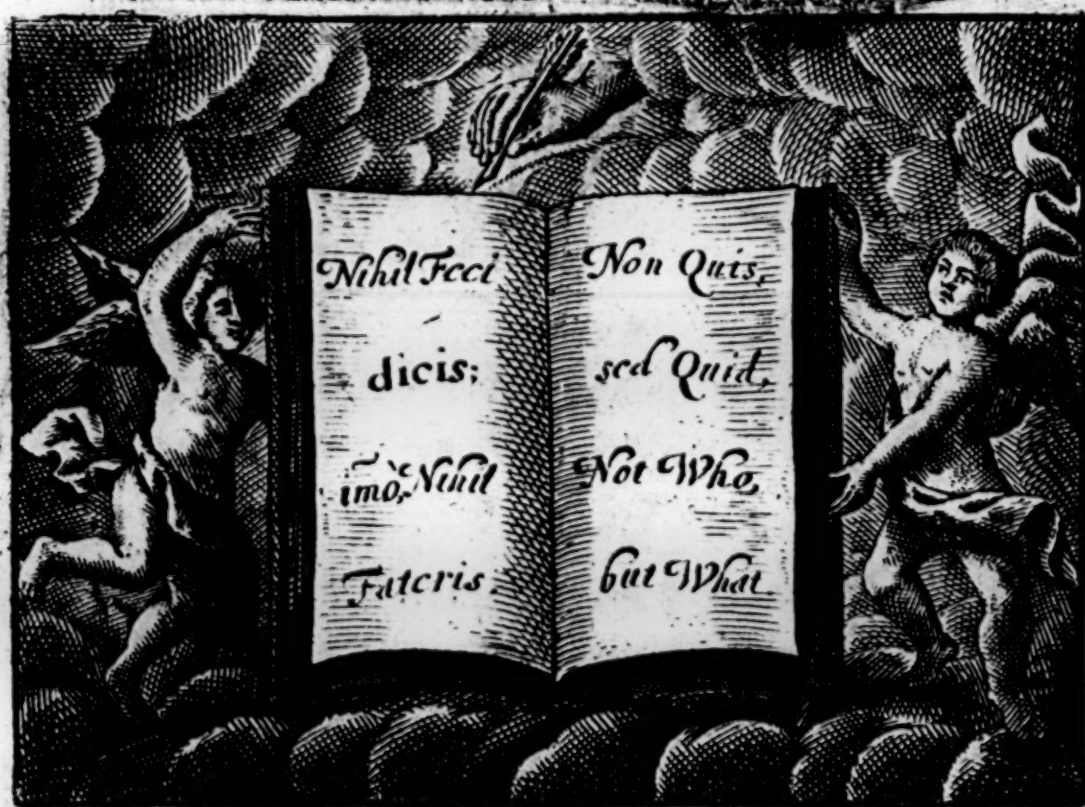 Nihil Feci
dicis;
im̃ò, Nihil
Fateris.
Non Quis,
sed Quid,
Not Who,
but What